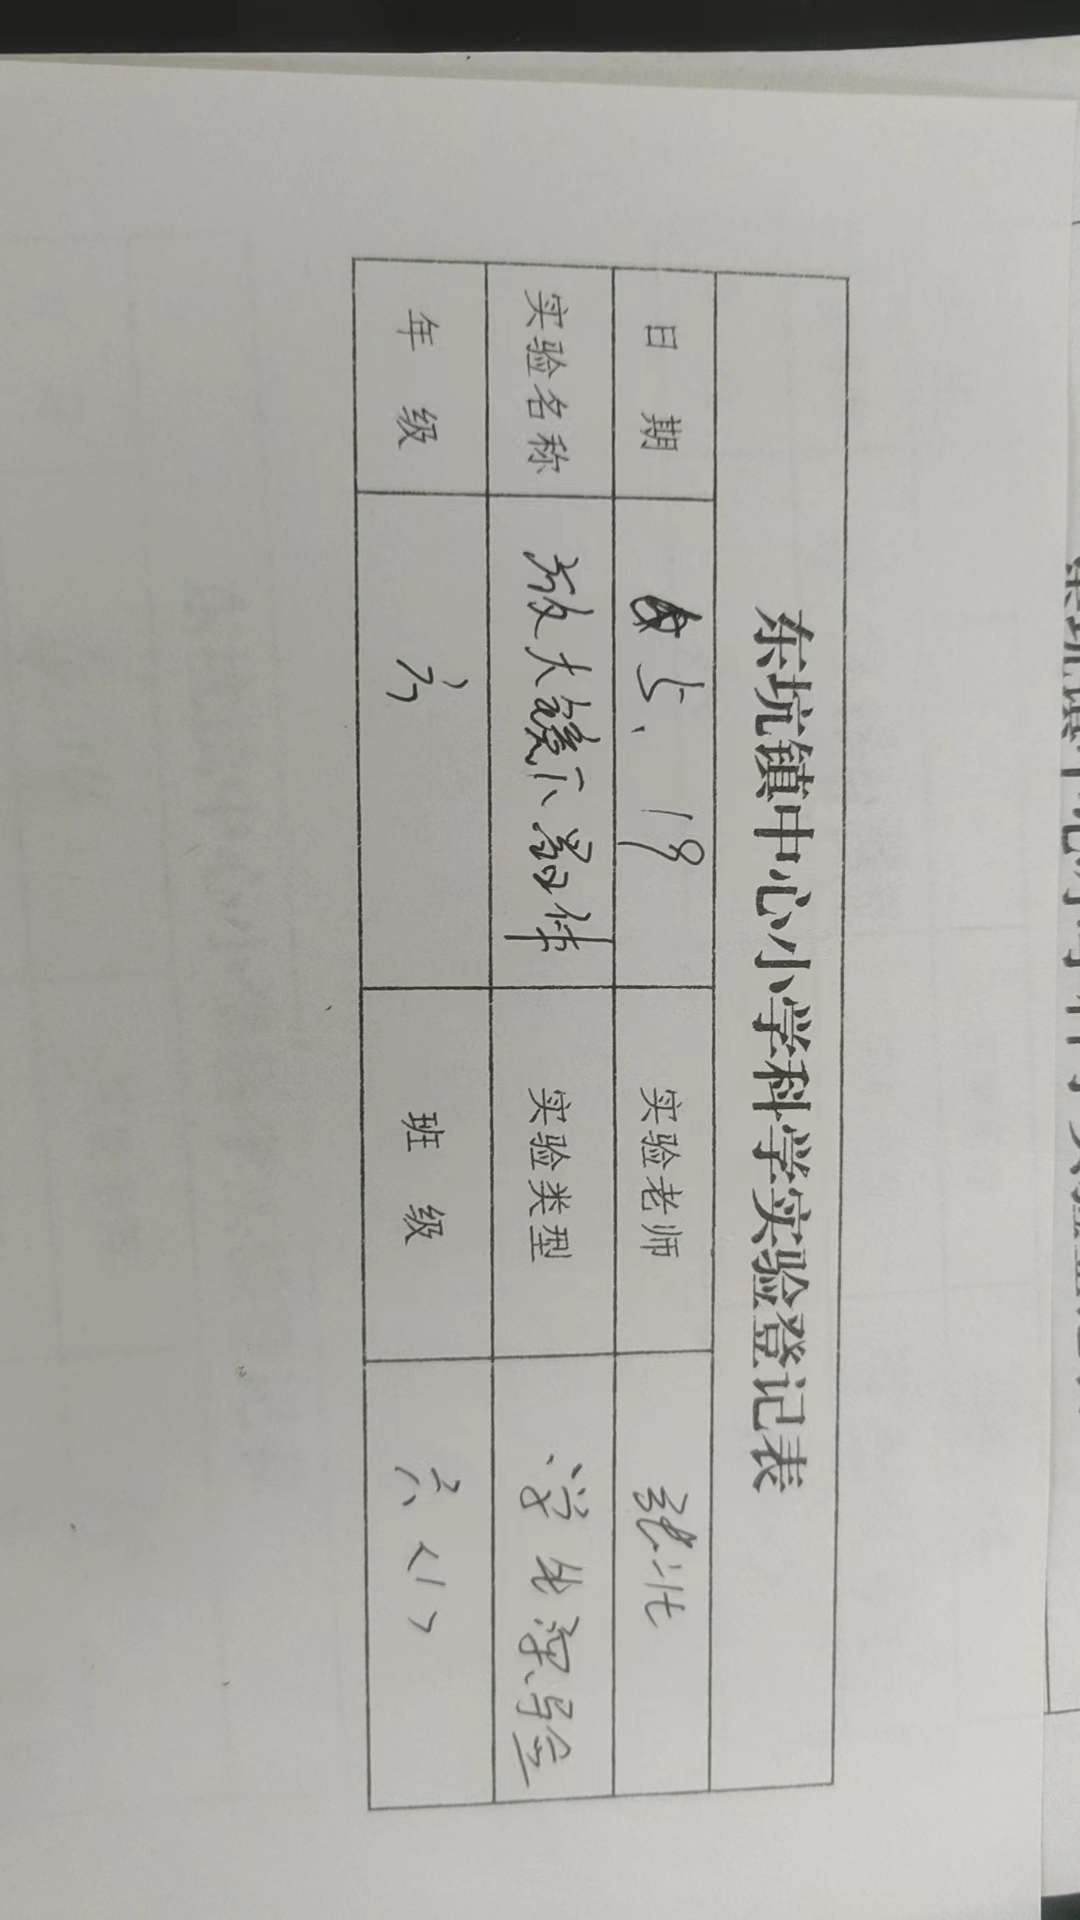 东坑镇中心小学科学实验登记表
日 期 5、19 实验老师 张北
实验名称 放大镜下的昆虫 实验类型 学生实验
年 级 六 班 级 六〈1〉